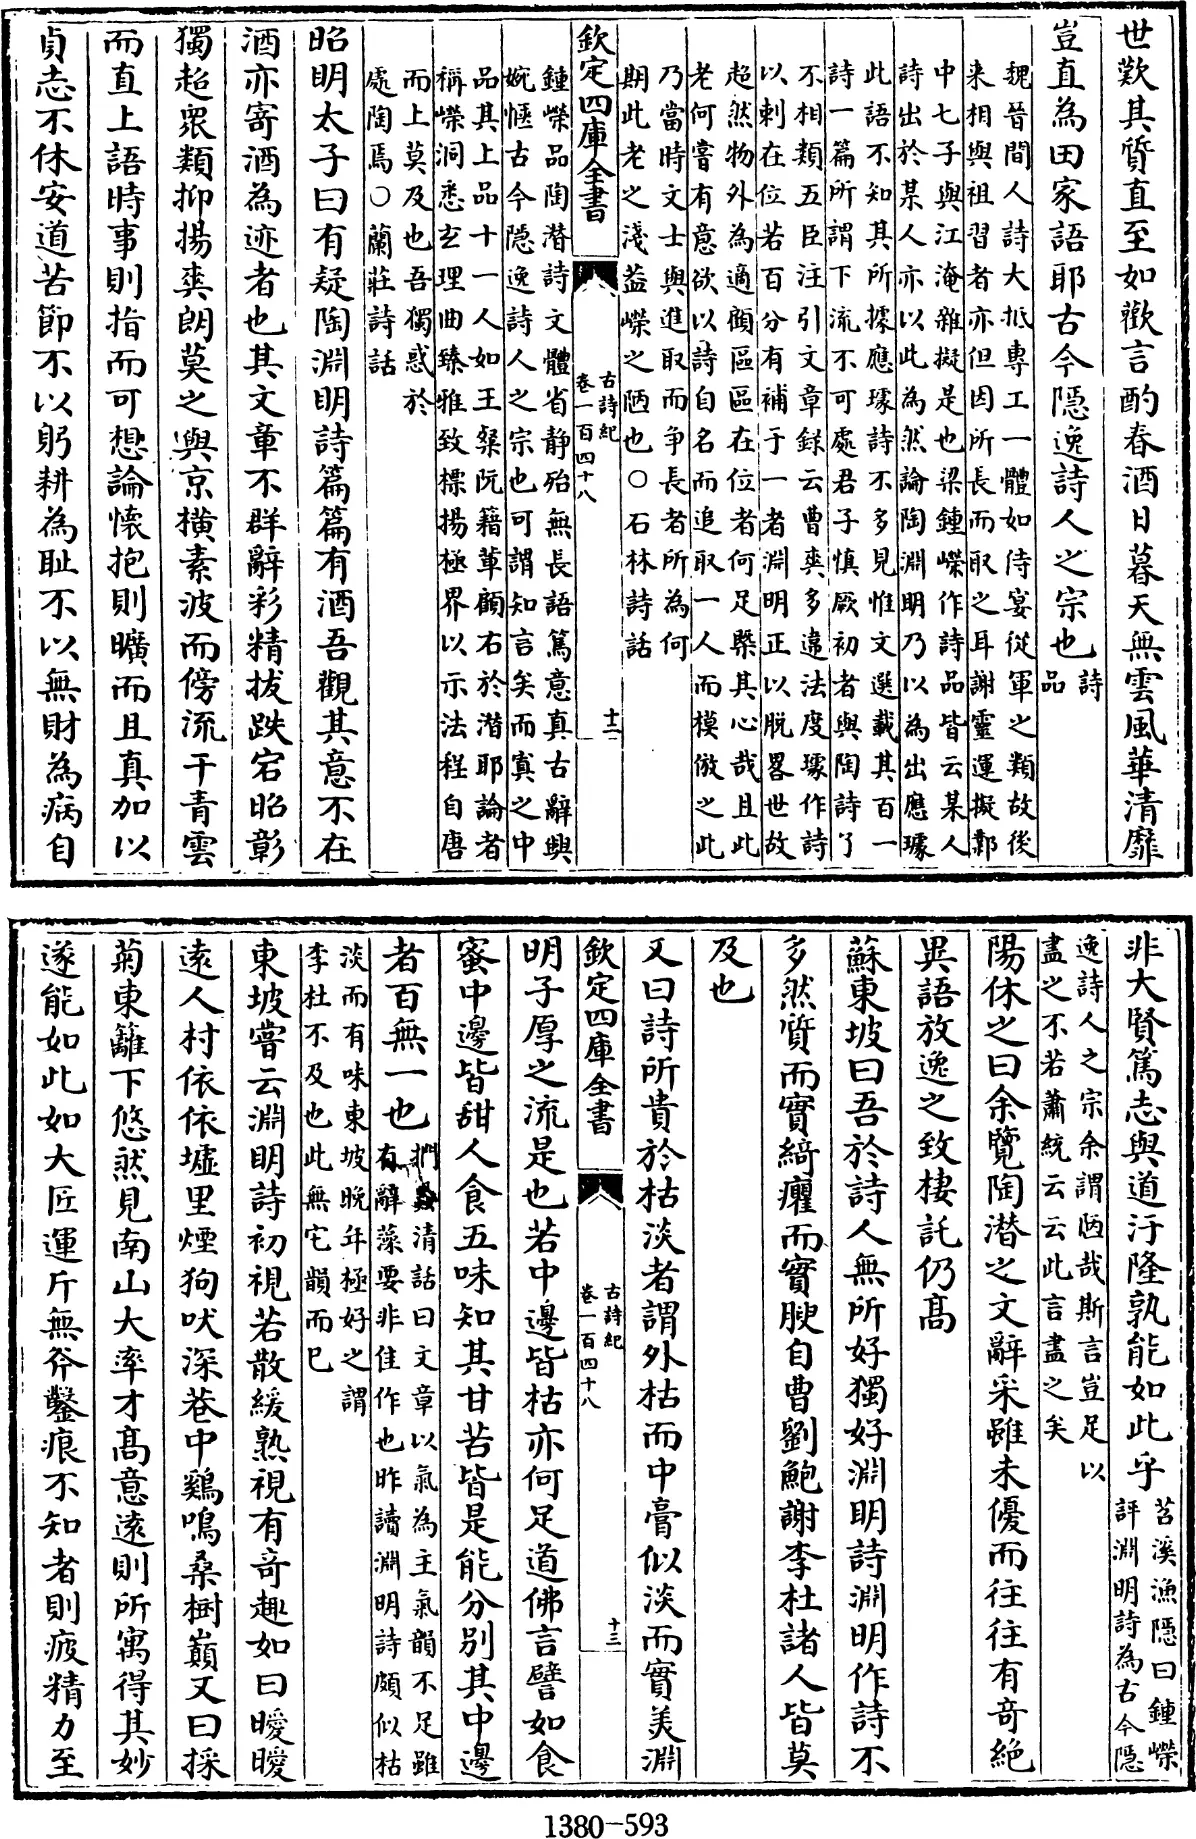 世歎其質直至如歡言酌春酒日暮天無雲風華清靡
豈直為田家語耶古今隱逸詩人之宗也詩品
魏晉間人詩大抵專工一體如侍宴從軍之類故後
来相與祖習者亦但因所長而取之耳謝靈運擬鄴
中七子與江淹雜擬是也梁鍾嶸作詩品皆云某人
詩出於某人亦以此為然論陶淵明乃以為出應璩
此語不知其所據應璩詩不多見惟文選載其百一
詩一篇所謂下流不可處君子慎厥初者與陶詩了
不相類五臣注引文章録云曹爽多違法度璩作詩
以刺在位若百分有補于一者淵明正以脱畧世故
超然物外為適顧區區在位者何足槩其心哉且此
老何嘗有意欲以詩自名而追取一人而模倣之此
乃當時文士與進取而争長者所為何
期此老之淺葢嶸之陋也○石林詩話
欽定四庫全書
古詩紀
卷一百四十八
十二
鍾嶸品陶潜詩文體省静殆無長語篤意真古辭興
婉愜古今隠逸詩人之宗也可謂知言矣而寘之中
品其上品十一人如王粲阮籍軰顧右於潜耶論者
稱嶸洞悉玄理曲臻雅致標揚極界以示法程自唐
而上莫及也吾獨惑於
處陶焉○蘭莊詩話
昭明太子曰有疑陶淵明詩篇篇有酒吾觀其意不在
酒亦寄酒為迹者也其文章不群辭彩精拔跌宕昭彰
獨超衆類抑揚爽朗莫之與京橫素波而傍流干青雲
而直上語時事則指而可想論懷抱則曠而且真加以
貞志不休安道苦節不以躬耕為恥不以無財為病自
非大賢篤志與道汙隆孰能如此乎苕溪漁隱曰鍾嶸
評淵明詩為古今隱
逸詩人之宗余謂陋哉斯言豈足以
盡之不若蕭統云云此言盡之矣
陽休之曰余覽陶潜之文辭采雖未優而往往有竒絶
異語放逸之致棲託仍髙
蘇東坡曰吾於詩人無所好獨好淵明詩淵明作詩不
多然質而實綺癯而實腴自曹劉鮑謝李杜諸人皆莫
及也
又曰詩所貴於枯淡者謂外枯而中膏似淡而實美淵
明子厚之流是也若中邊皆枯亦何足道佛言譬如食
欽定四庫全書
古詩紀
卷一百四十八
十三
蜜中邊皆甜人食五味知其甘苦皆是能分别其中邊
者百無一也捫蝨清話曰文章以氣為主氣韻不足雖
有辭藻要非佳作也昨讀淵明詩頗似枯
淡而有味東坡晚年極好之謂
李杜不及也此無它韻而已
東坡嘗云淵明詩初視若散緩熟視有竒趣如曰曖曖
逺人村依依墟里煙狗吠深巷中鷄鳴桑樹巔又曰採
菊東籬下悠然見南山大率才髙意逺則所寓得其妙
遂能如此如大匠運斤無斧鑿痕不知者則疲精力至
1380-593